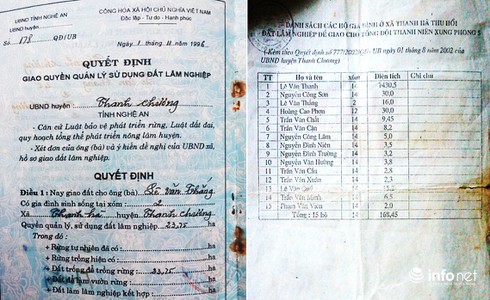 UBND TỈNH NGHỆ AN
CỘNG HÒA XÃ HỘI CHỦ NGHĨA VIỆT NAM
Độc lập - Tự do - Hạnh phúc
Số 178 QĐ/UB
Ngày 1 . 11 . 1996
QUYẾT ĐỊNH
GIAO QUYỀN QUẢN LÝ SỬ DỤNG ĐẤT LÂM NGHIỆP
UBND huyện: Thanh Chương
TỈNH NGHỆ AN
- Căn cứ Luật bảo vệ phát triển rừng, Luật đất đai,
quy hoạch tổng thể phát triển nông lâm huyện.
- Xét đơn của ông (bà) và ý kiến đề nghị của UBND xã,
hồ sơ giao đất lâm nghiệp.
QUYẾT ĐỊNH
Điều 1: Nay giao đất cho ông (bà) Lê Văn Thắng
Có gia đình sinh sống tại xóm 2
Xã Thanh hà huyện Thanh chương
Quyền quản lý, sử dụng đất lâm nghiệp 23,75 ha
Trong đó:
+ Rừng tự nhiên đã có: ha
+ Rừng trồng hiện có: ha
+ Đất trồng đồ trống rừng: 23,75 ha
+ Đất để làm vườn rừng: ha
+ Đất lâm nghiệp kết hợp: ha
DANH SÁCH CÁC HỘ GIA ĐÌNH Ở XÃ THANH HÀ THU HỒI
ĐẤT LÂM NGHIỆP ĐỂ GIAO CHO TỔNG ĐỘI THANH NIÊN XUNG PHONG 5
(Kèm theo Quyết định số 777/2002/QĐ.UB ngày 01 tháng 8 năm 2002 của
UBND huyện Thanh Chương)
TT Họ và tên Diện tích Ghi chú
1 Lê Văn Thanh
2 Nguyễn Công Sơn 30,0
3 Lê Văn Thắng 2 16,0
4 Hoàng Cao Phơn 12 30,0
5 Trần Văn Chất 14 9,45
6 Trần Văn Cận 14 8,2
7 Nguyễn Công Lâm 14 5,0
8 Nguyễn Đình Niên 14 3,5
9 Nguyễn Đình Trường 14 3,2
10 Nguyễn Văn Hường 14 3,8
11 Trần Văn Cầu 14 2,8
12 Trần Văn Xoăn 14
13 Lê Văn 14
14 Trần Văn Minh 14 6,5
15 Phạm Văn Viên 14 2,0
Tổng: 15 hộ 168,45
infonet